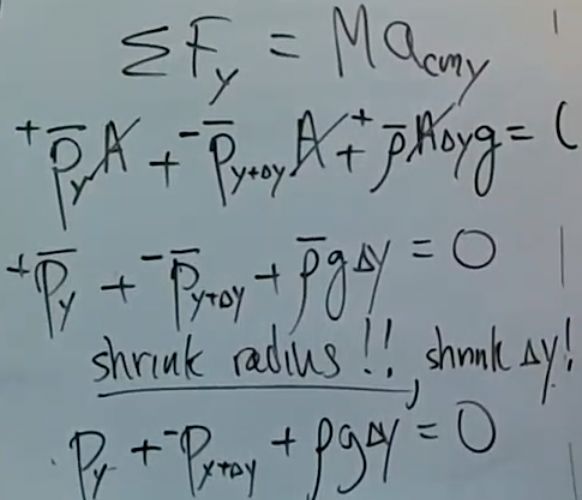 ΣF_y = Ma_cmy
⁺P̄_y A + ⁻P̄_{y+Δy} A + ⁺ρ̄AΔyg = (
⁺P̄_y + ⁻P̄_{y+Δy} + ρ̄gΔy = 0
shrink radius!!, shrink Δy!
P_y + ⁻P_{y+Δy} + ρgΔy = 0